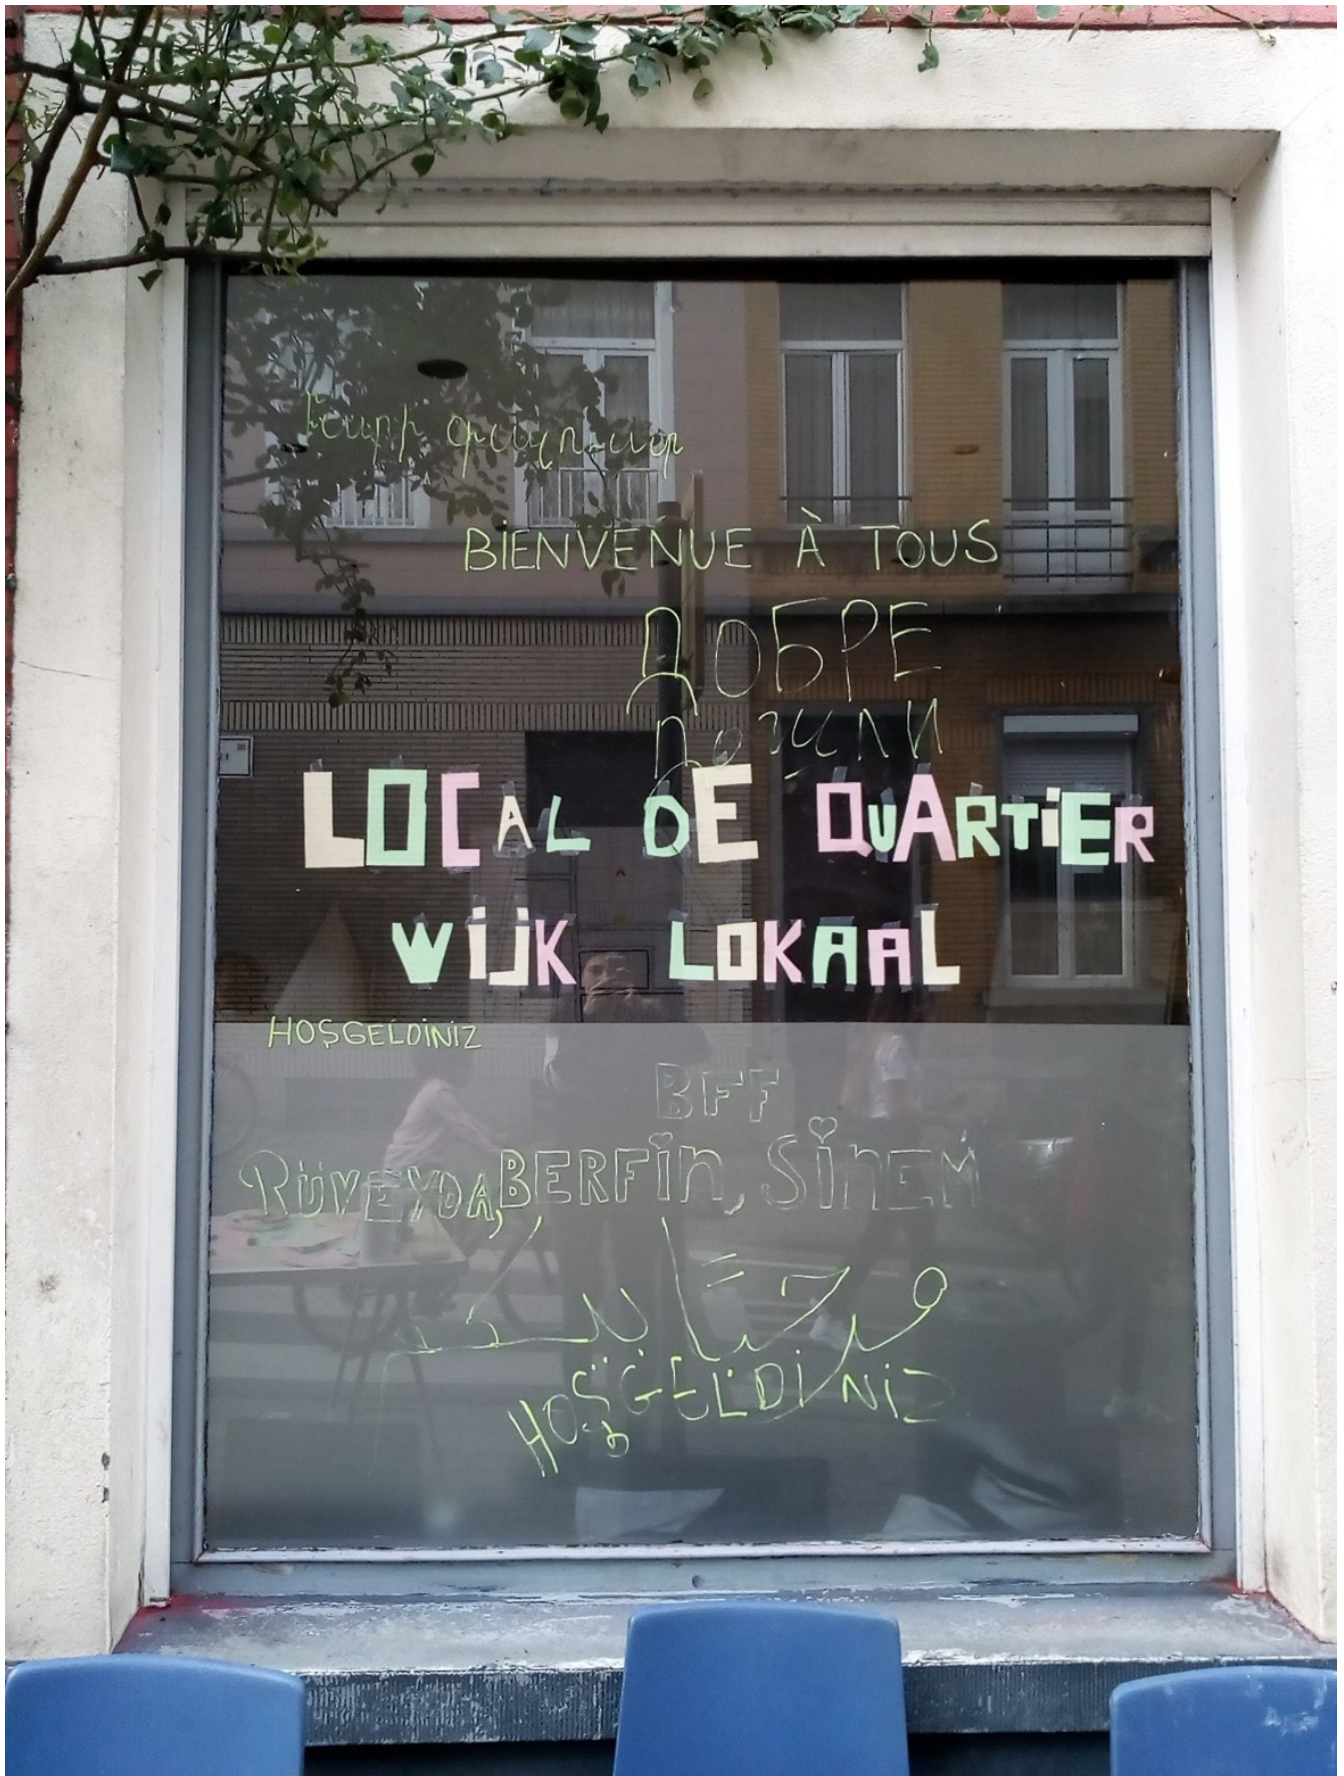 Բարի գալուստ
BİENVENUE À TOUS
ДОБРЕ
ДОШЛИ
LOCAL DE QUARTiER
WIJK LOKAAL
HOŞGELDİNİZ
BFF
RÜVEYDA, BERFİN, SİNEM
مرحبًا بك
HOŞGELDİNİZ